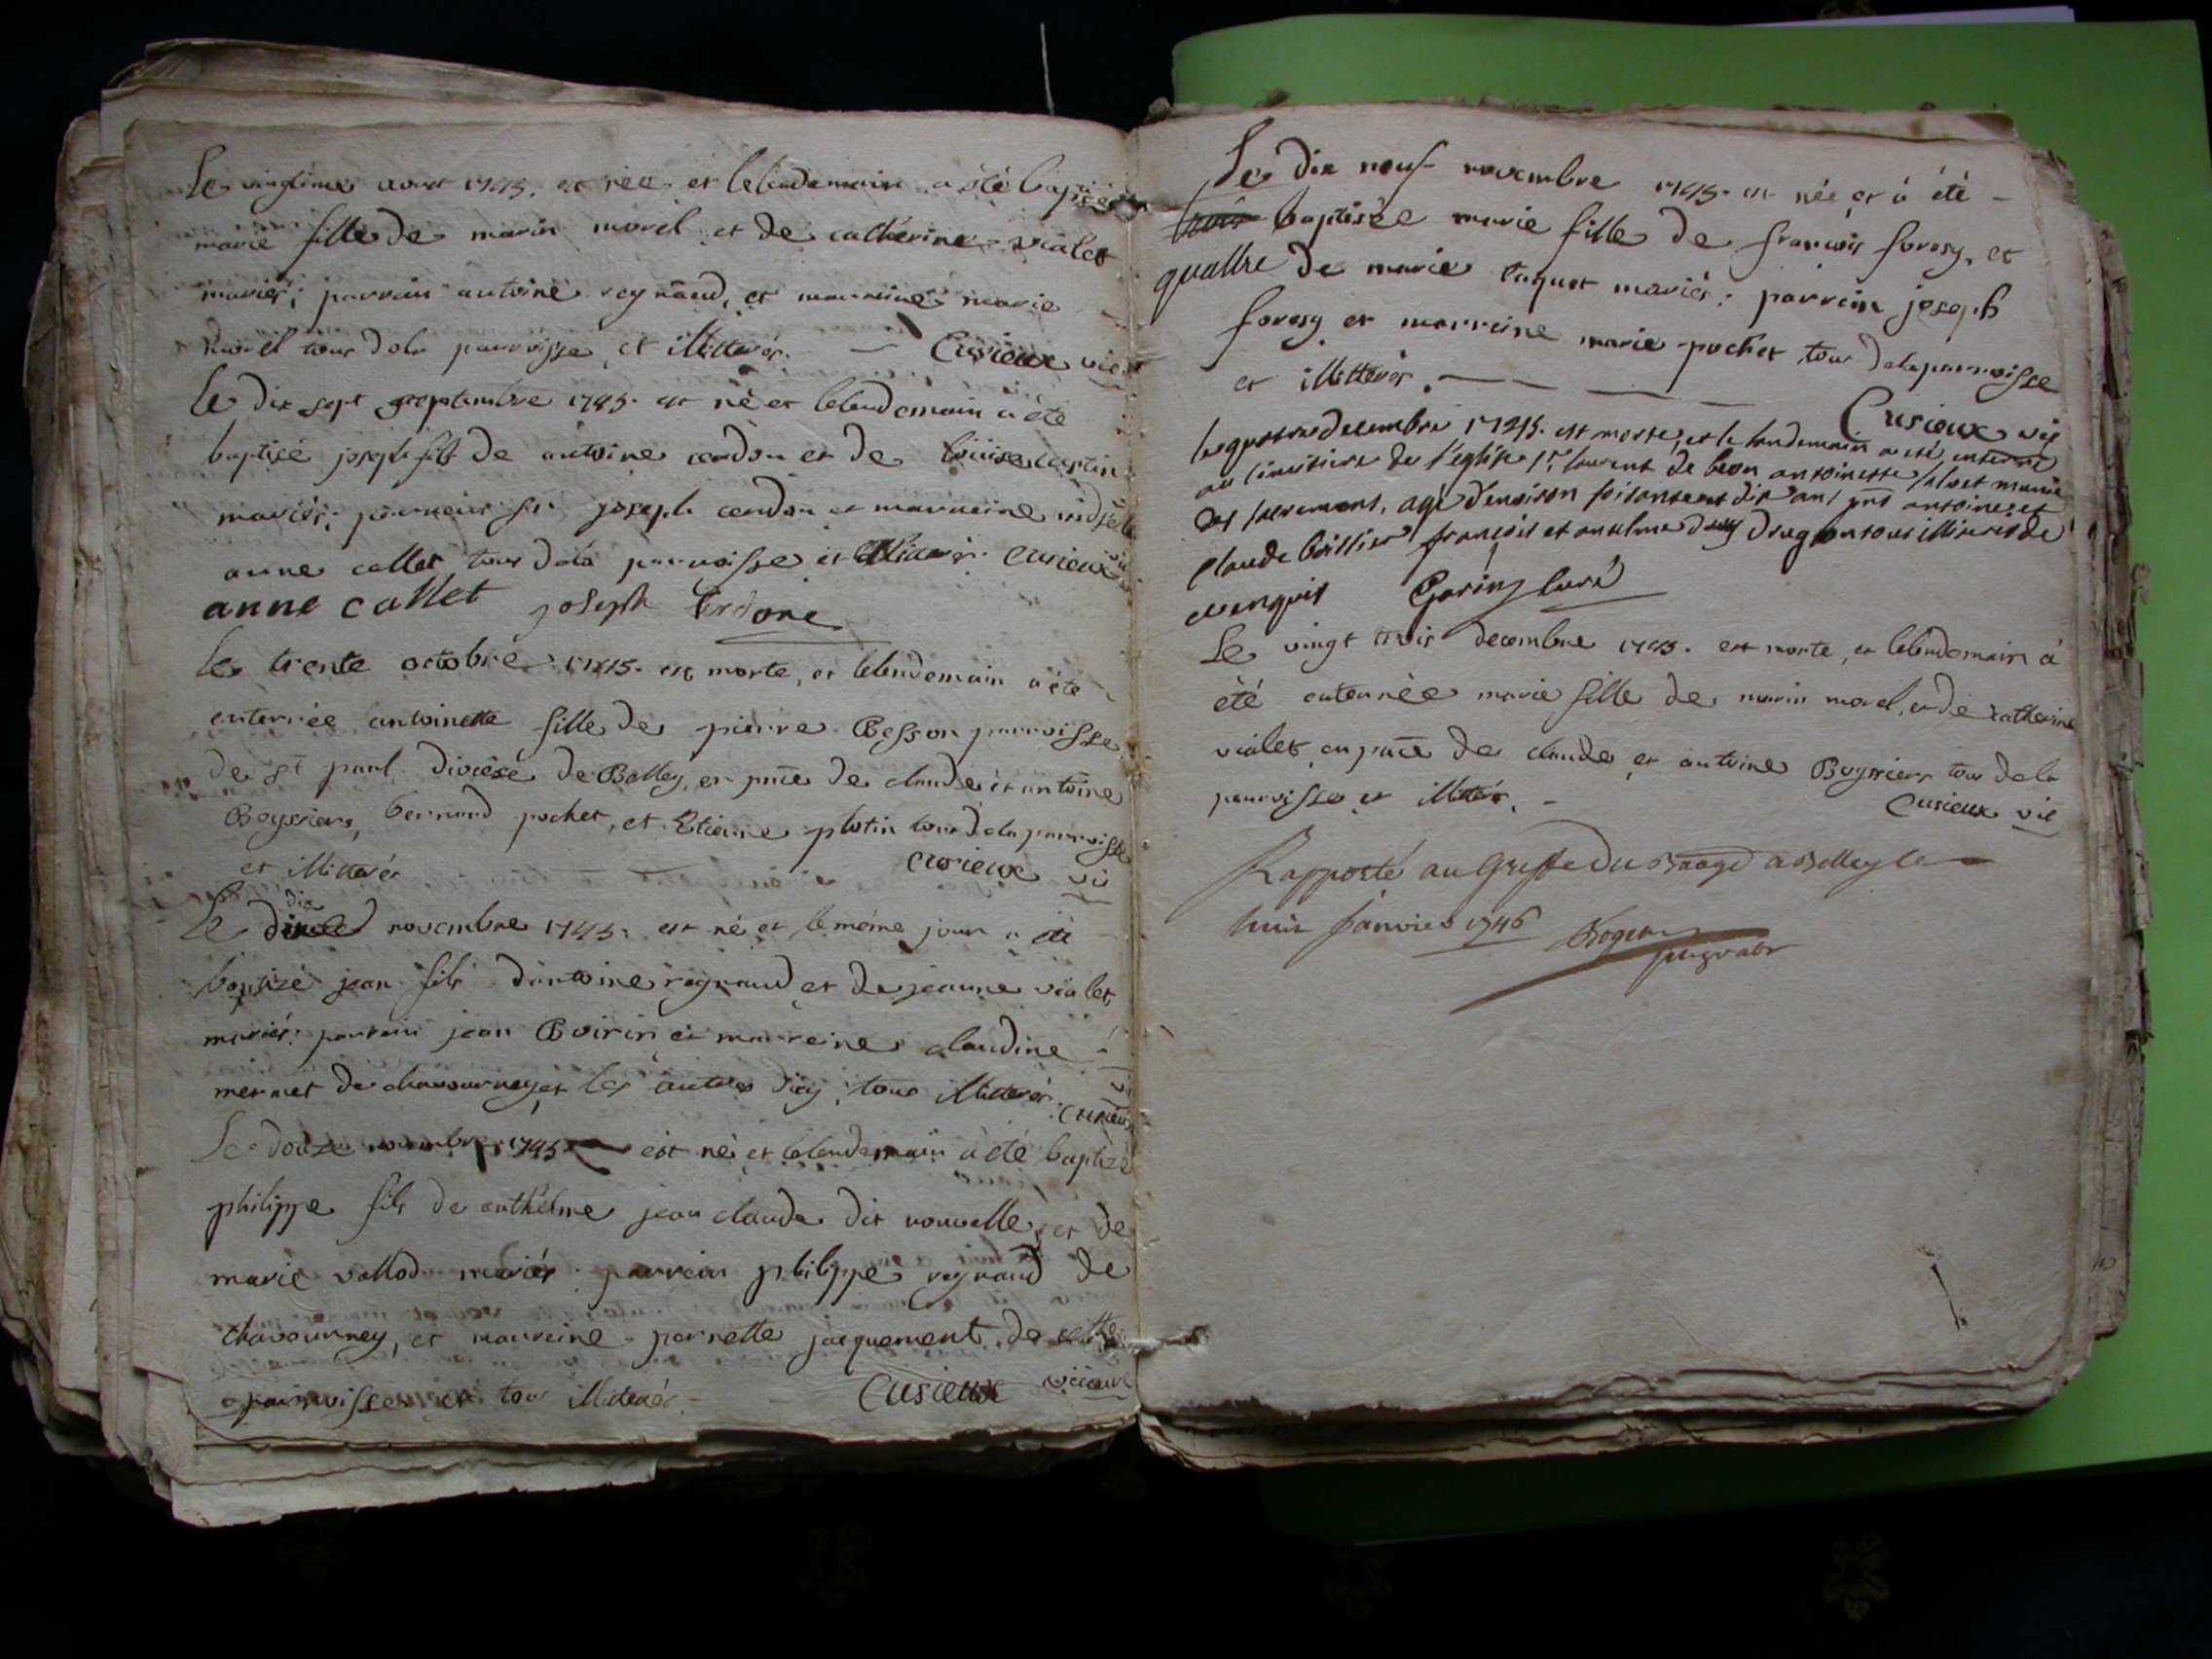 Le vingtieme aoust 1745. est née et lelendemain a été baptisée
marie fille de marin morel et de catherine vialet
mariés; parrain antoine reynaud, et marreine marie
morel tous dela parroisse et illitterés. Cusieux vic
Le dix sept septembre 1745. est né et lelendemain a été
baptisé joseph fils de antoine cendon et de louise
mariés; parrein sr joseph cendon et marreine
anne callet tous dela parroisse et illiterés. Cusieux
anne callet joseph
Le trente octobre 1745. est morte, et lelendemain a été
enterrée antoinette fille de pierre Besson parroisse
de st paul diocèse de Belley, en pnce de claude et antoine
Boyssiers, bernard pochet, et Etienne plotin tous dela parroisse
et illitterés Cusieux vic
Le dix novembre 1745. est né et le même jour a été
baptizé jean fils d'antoine reynaud et de jeanne vialet
mariés: parrain jean Boirin et marreine claudine
mermet de chavournay et les autres d'icy, tous illitterés. Cusieux
Le douze novembre 1745 est né et lelendemain a été baptizé
philippe fils de anthelme jean claude dit nouvelle, et de
marie vallod mariés. parrein philippe reynaud de
chavournay, et marreine pernette jacquemont de cette
parroisse et tous illiterés. Cusieux vicaire
Le dix neuf novembre 1745. est née et à été
baptisée marie fille de françois foresy, et
quattre de marie luquet mariés; parrein joseph
foresy et marreine marie pochet, tous delaparroisse
et illitterés. Cusieux vic
le quatre decembre 1745. est morte, et le landemain a esté enterré
au cimitiere de l'eglise st laurent de beon antoinette munie
des sacrements, agé d'environ soisante et dix ans pnts antoine et
claude boissier françois et anselme tous illiterés de
ce enquis Garin curé
Le vingt trois decembre 1745. est morte, et lelendemain a
été enterrée marie fille de marin morel, et de catherine
vialet, en pnce de claude et antoine Boyssiers tous dela
parroisse et illitterés. Cusieux vic
Rapporté au Greffe du Baage a Belley le
huit janvier 1746